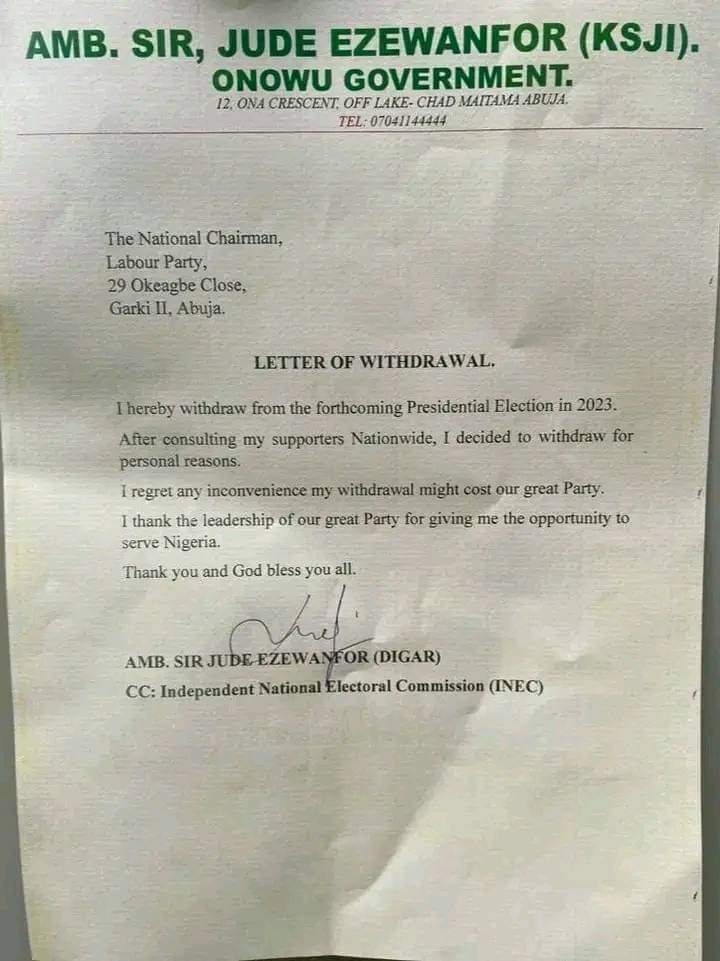 AMB. SIR, JUDE EZEWANFOR (KSJI).
ONOWU GOVERNMENT.
12, ONA CRESCENT, OFF LAKE- CHAD MAITAMA ABUJA.
TEL: 07041144444
The National Chairman,
Labour Party,
29 Okeagbe Close,
Garki II, Abuja.
LETTER OF WITHDRAWAL.
I hereby withdraw from the forthcoming Presidential Election in 2023.
After consulting my supporters Nationwide, I decided to withdraw for
personal reasons.
I regret any inconvenience my withdrawal might cost our great Party.
I thank the leadership of our great Party for giving me the opportunity to
serve Nigeria.
Thank you and God bless you all.
AMB. SIR JUDE EZEWANFOR (DIGAR)
CC: Independent National Electoral Commission (INEC)